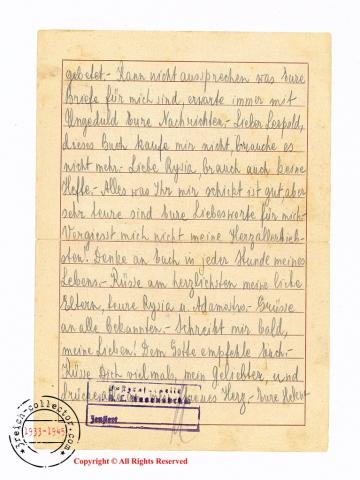 gebetet.- Kann nicht aussprechen was Eure
Briefe für mich sind, erwarte immer mit
Ungeduld Eure Nachrichten.- Lieber Leopold,
dieses Buch kaufe mir nicht, brauche es
nicht mehr.- Liebe Rysia, brauch auch keine
Hefte.- Alles was Ihr mir schickt ist gut, aber
sehr teure sind Eure Liebesworte für mich.-
Vergiesst mich nicht meine Herzallerlieb-
sten! Denke an Euch in jeder Stunde meines
Lebens.- Küsse am herzlichsten meine liebe
Eltern, teure Rysia u. Grüsse
an alle bekannten.- Schreibt mir bald,
meine Lieben! Dem Gotte empfehle Euch.-
Küsse Dich vielmals, mein Geliebter, und
drücke Herz - Eure
Postzensurstelle
Zensiert
3reich-collector.com
1933-1945
Copyright © All Rights Reserved